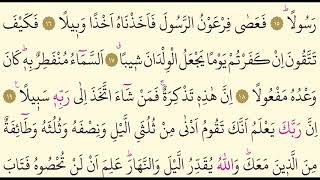 رَسُولًا ۝١٥ فَعَصَىٰ فِرْعَوْنُ الرَّسُولَ فَأَخَذْنَاهُ أَخْذًا وَبِيلًا ۝١٦ فَكَيْفَ
تَتَّقُونَ إِن كَفَرْتُمْ يَوْمًا يَجْعَلُ الْوِلْدَانَ شِيبًا ۝١٧ السَّمَاءُ مُنفَطِرٌ بِهِ ۚ كَانَ
وَعْدُهُ مَفْعُولًا ۝١٨ إِنَّ هَٰذِهِ تَذْكِرَةٌ ۖ فَمَن شَاءَ اتَّخَذَ إِلَىٰ رَبِّهِ سَبِيلًا ۝١٩
إِنَّ رَبَّكَ يَعْلَمُ أَنَّكَ تَقُومُ أَدْنَىٰ مِن ثُلُثَيِ اللَّيْلِ وَنِصْفَهُ وَثُلُثَهُ وَطَائِفَةٌ
مِّنَ الَّذِينَ مَعَكَ ۚ وَاللَّهُ يُقَدِّرُ اللَّيْلَ وَالنَّهَارَ ۚ عَلِمَ أَن لَّن تُحْصُوهُ فَتَابَ